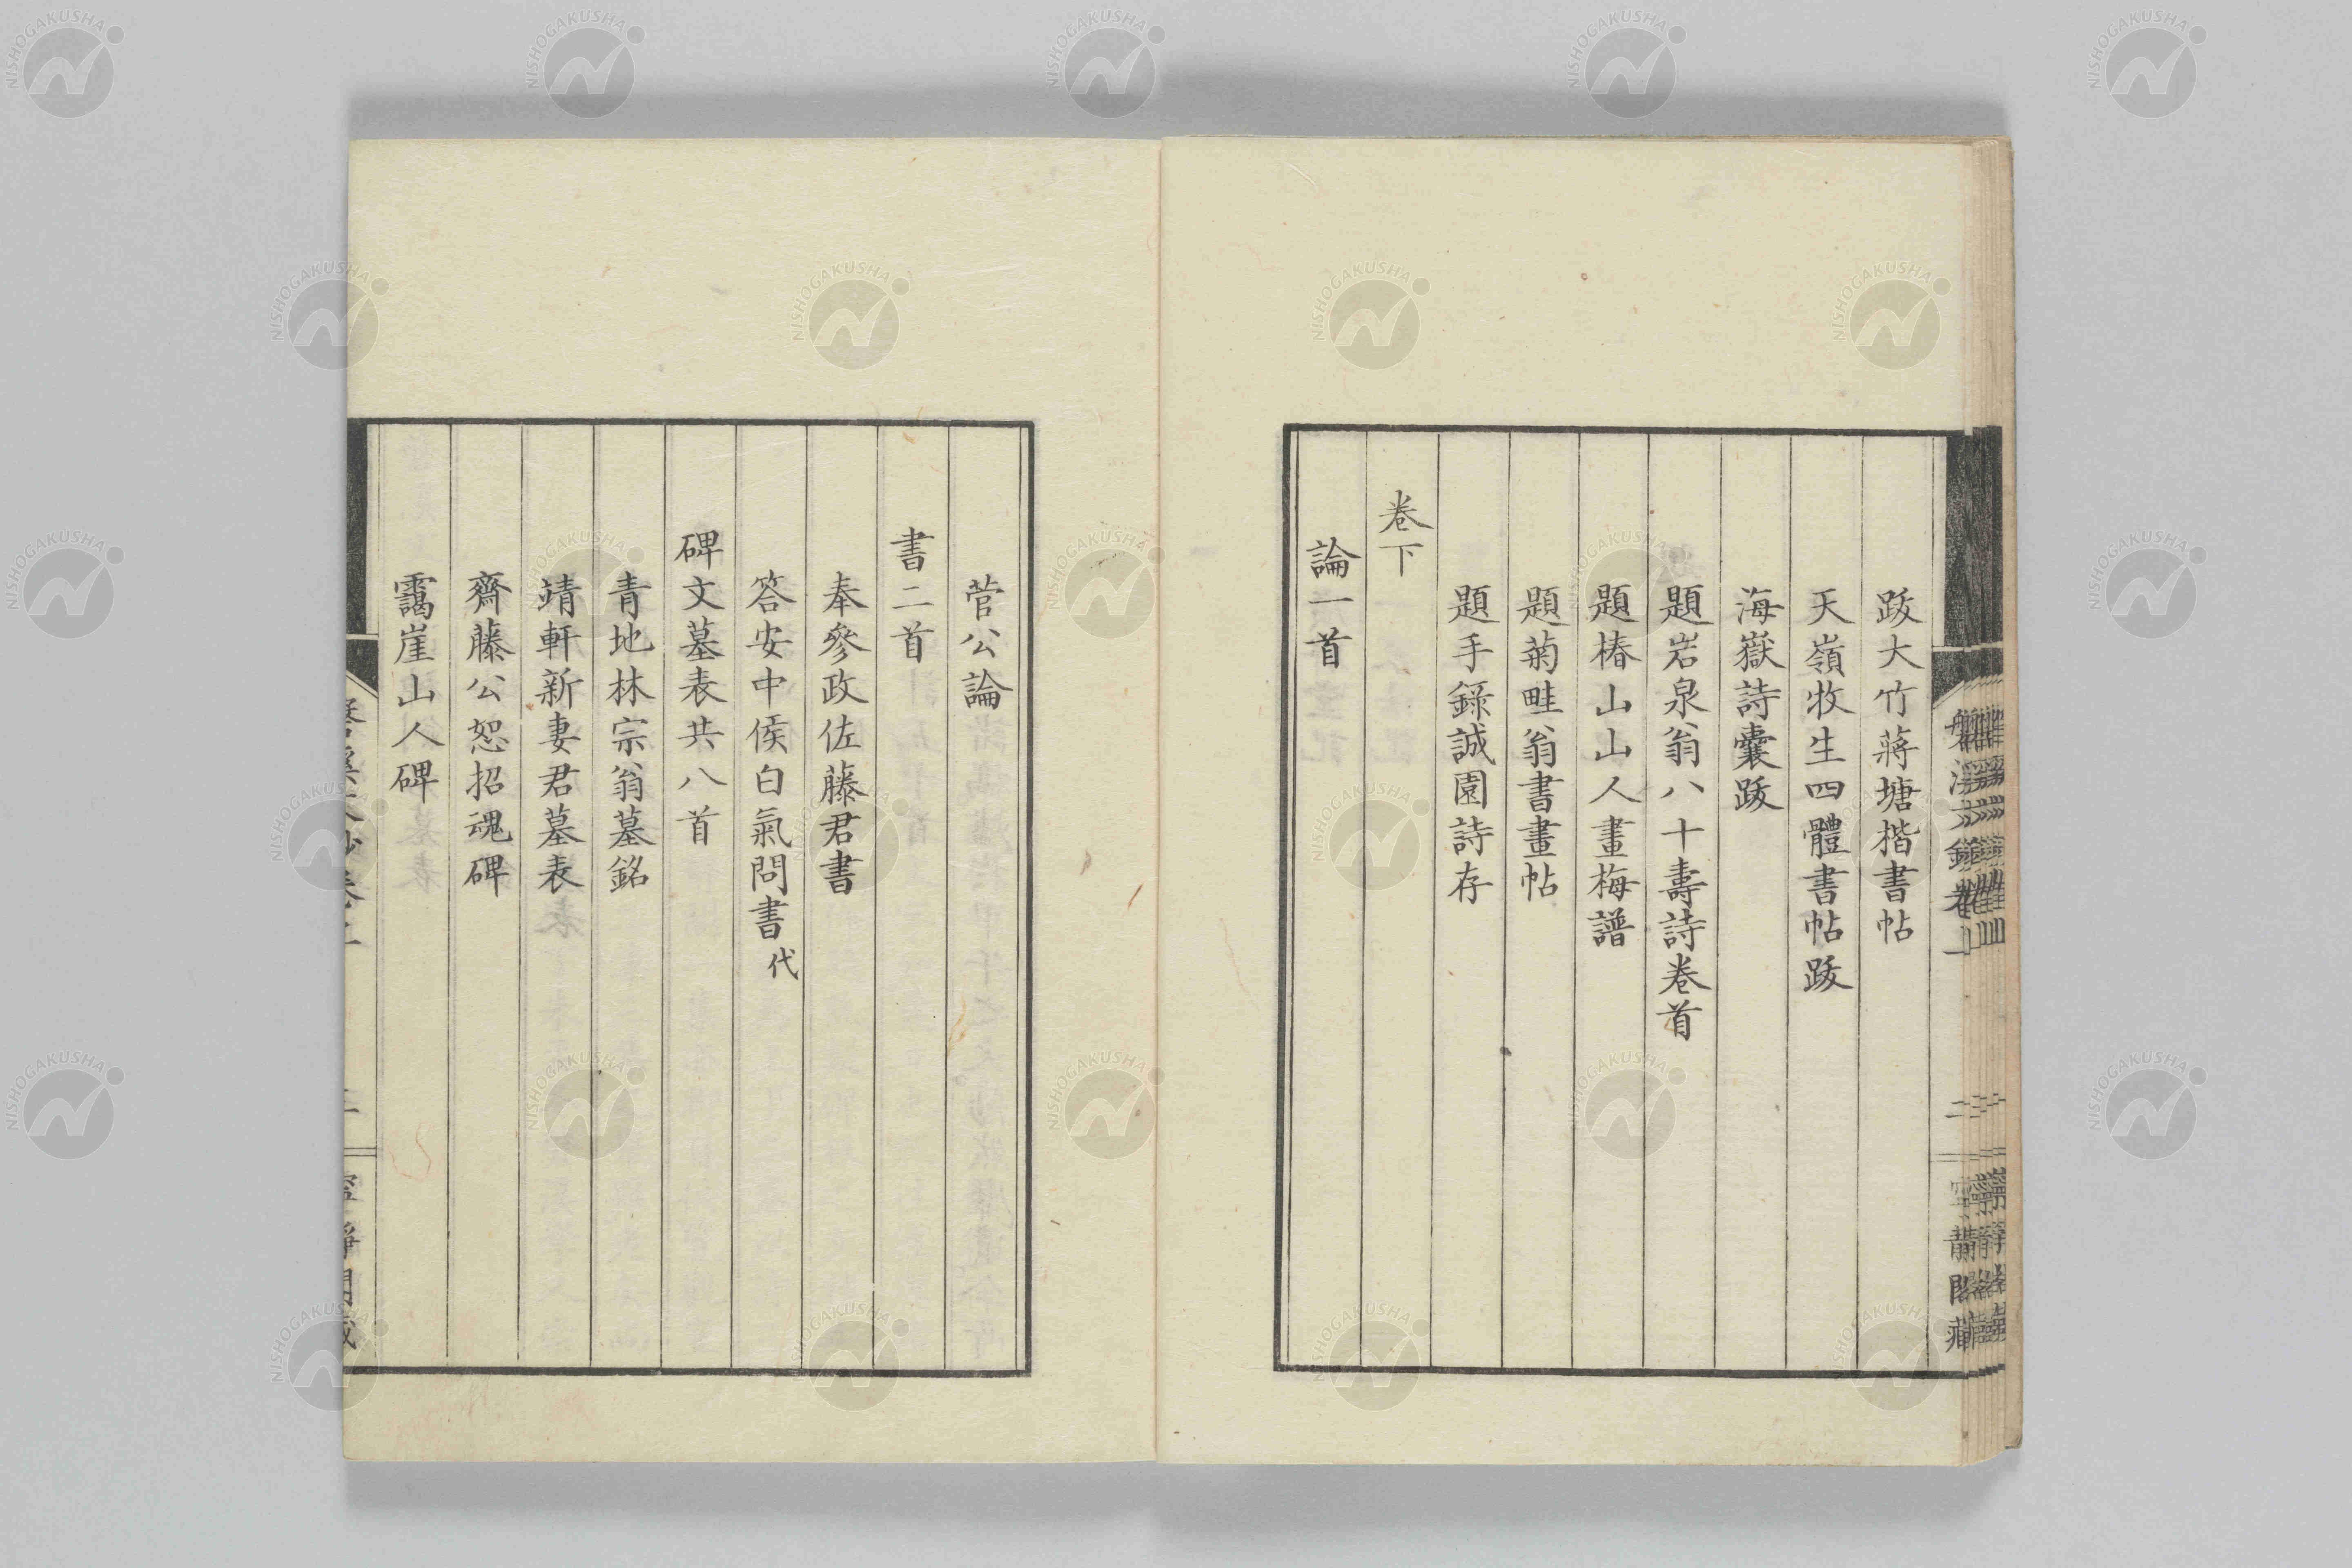 跋大竹蔣塘楷書帖
天嶺牧生四體書帖跋
海嶽詩囊跋
題岩泉翁八十壽詩卷首
題椿山山人畫梅譜
題菊畦翁書畫帖
題手錄誠園詩存
卷下
論一首
菅公論
書二首
奉參政佐藤君書
答安中侯白氣問書代
碑文墓表共八首
青地林宗翁墓銘
靖軒新妻君墓表
齋藤公恕招魂碑
靄崖山人碑
NISHOGAKUSHA